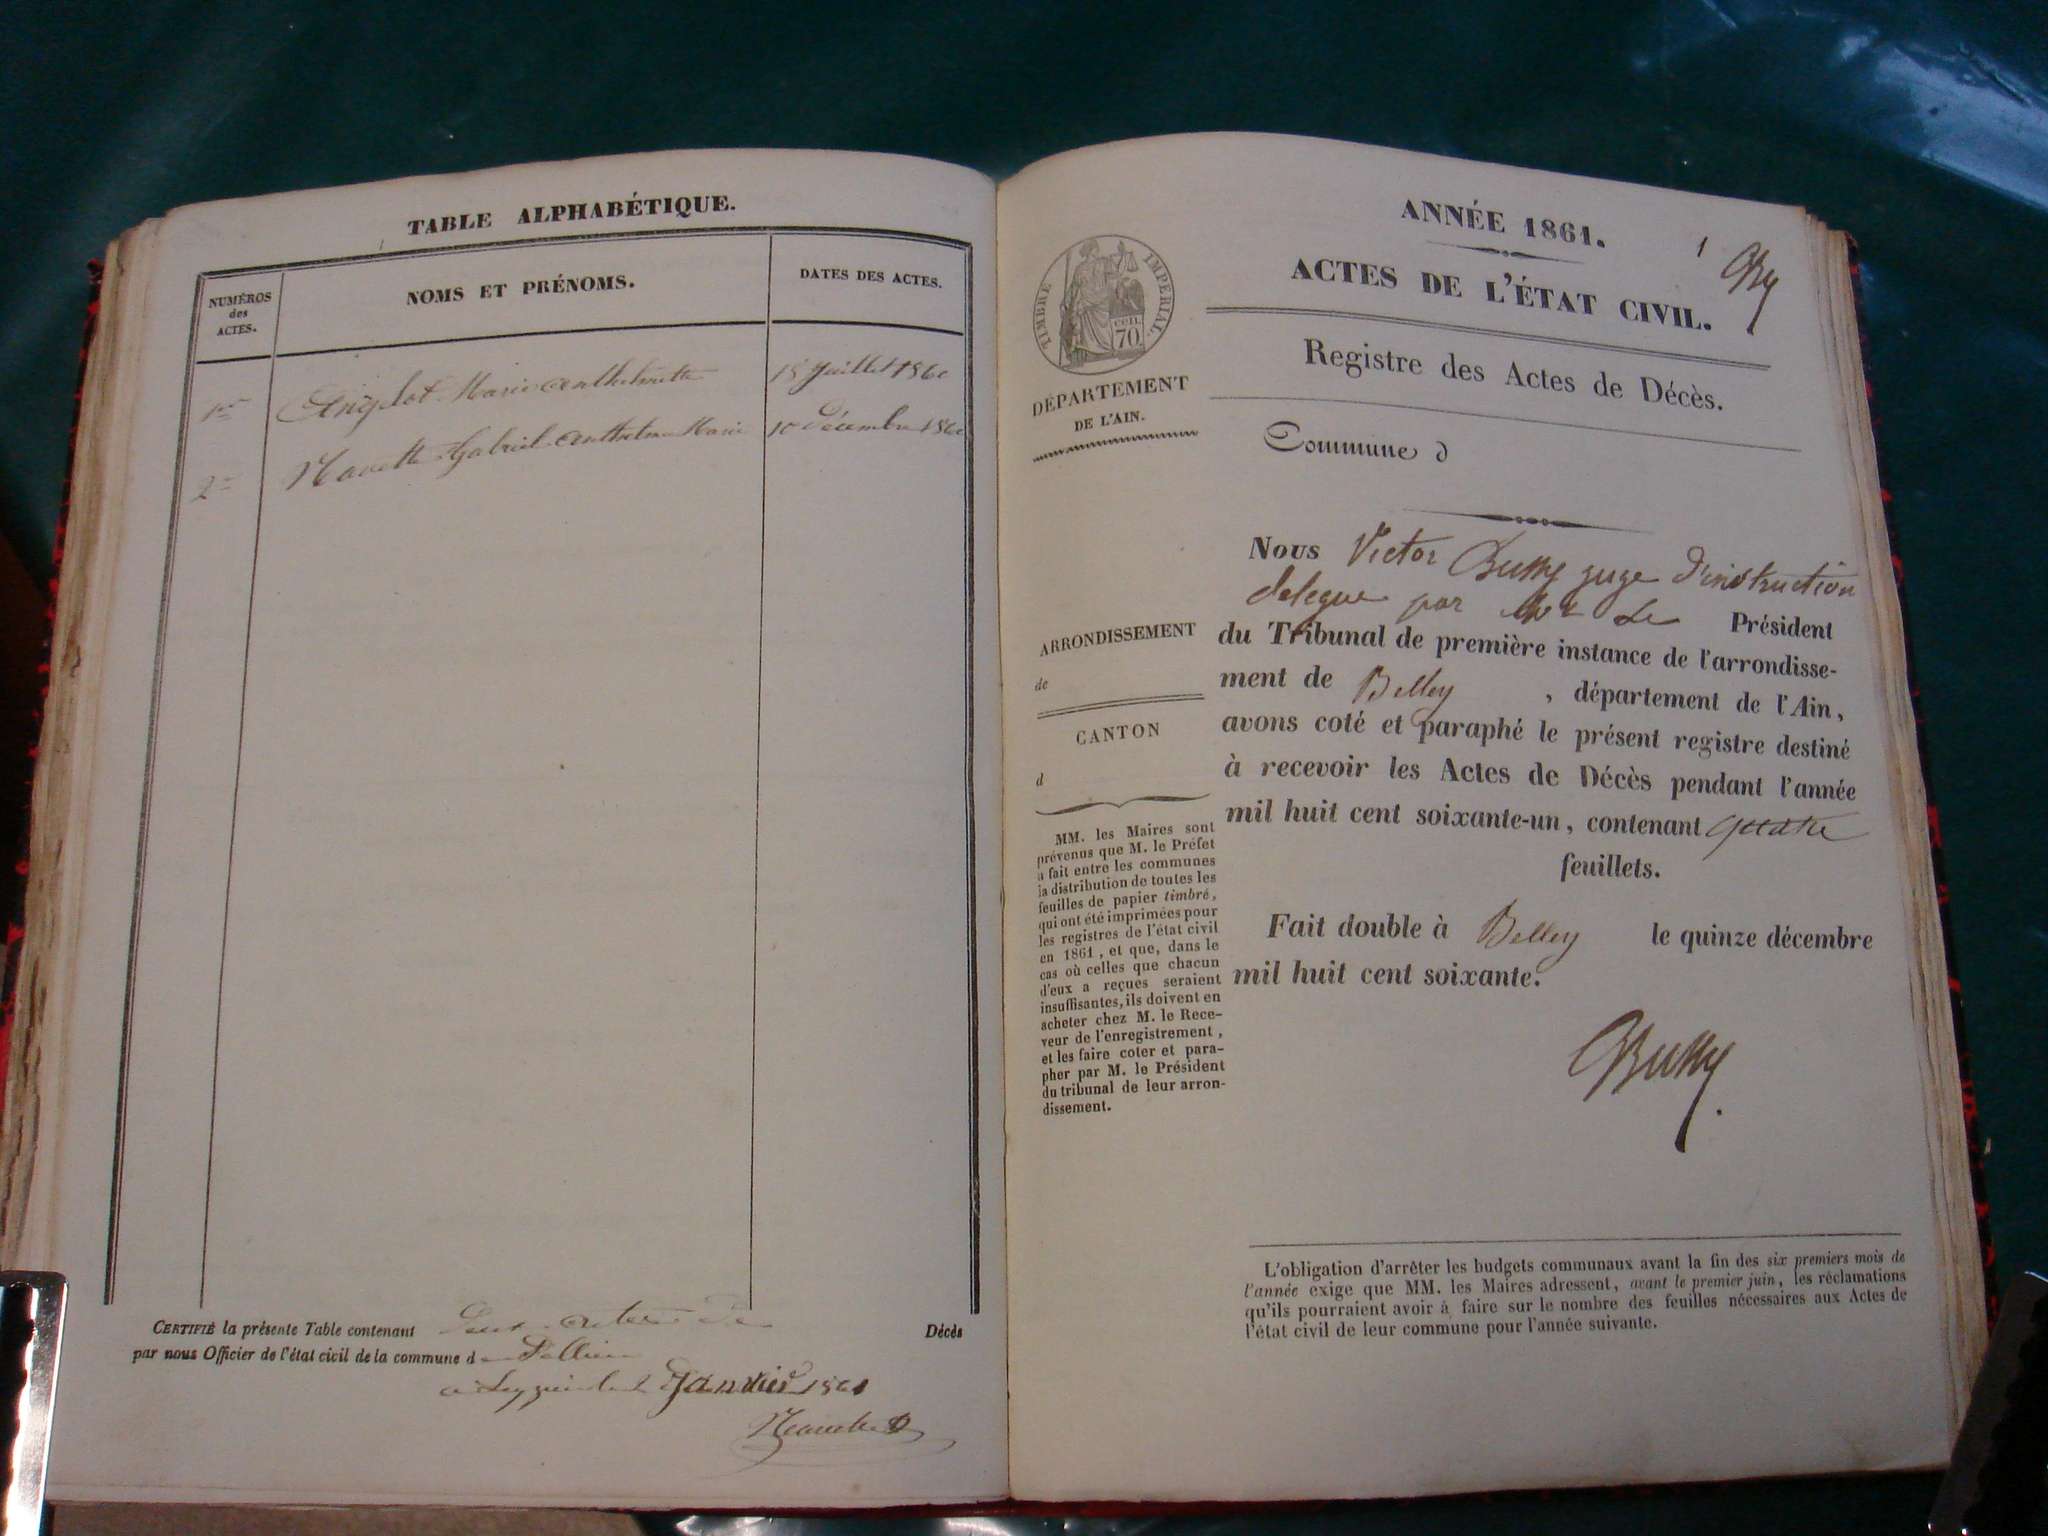 TABLE ALPHABÉTIQUE.
NUMÉROS
des
ACTES.
NOMS ET PRÉNOMS.
DATES DES ACTES.
1er
Marie Anthelmette
18 Juillet 1860
2e
Navette Gabriel Anthelme Marie
10 Décembre 1860
CERTIFIÉ la présente Table contenant deux actes de Décès
par nous Officier de l'état civil de la commune de Pollieu
à Janvier 1861
Navette
ANNÉE 1861.
1
ACTES DE L'ÉTAT CIVIL.
Registre des Actes de Décès.
Commune d
TIMBRE IMPÉRIAL.
CEN. 70
DÉPARTEMENT
DE L'AIN.
ARRONDISSEMENT
de
CANTON
d
MM. les Maires sont
prévenus que M. le Préfet
a fait entre les communes
la distribution de toutes les
feuilles de papier timbré,
qui ont été imprimées pour
les registres de l'état civil
en 1861, et que, dans le
cas où celles que chacun
d'eux a reçues seraient
insuffisantes, ils doivent en
acheter chez M. le Rece-
veur de l'enregistrement,
et les faire coter et para-
pher par M. le Président
du tribunal de leur arron-
dissement.
Nous Victor Bussy juge d'instruction
delegue par Mr Le Président
du Tribunal de première instance de l'arrondisse-
ment de Belley , département de l'Ain,
avons coté et paraphé le présent registre destiné
à recevoir les Actes de Décès pendant l'année
mil huit cent soixante-un, contenant quatre
feuillets.
Fait double à Belley le quinze décembre
mil huit cent soixante.
Bussy
L'obligation d'arrêter les budgets communaux avant la fin des six premiers mois de
l'année exige que MM. les Maires adressent, avant le premier juin, les réclamations
qu'ils pourraient avoir à faire sur le nombre des feuilles nécessaires aux Actes de
l'état civil de leur commune pour l'année suivante.